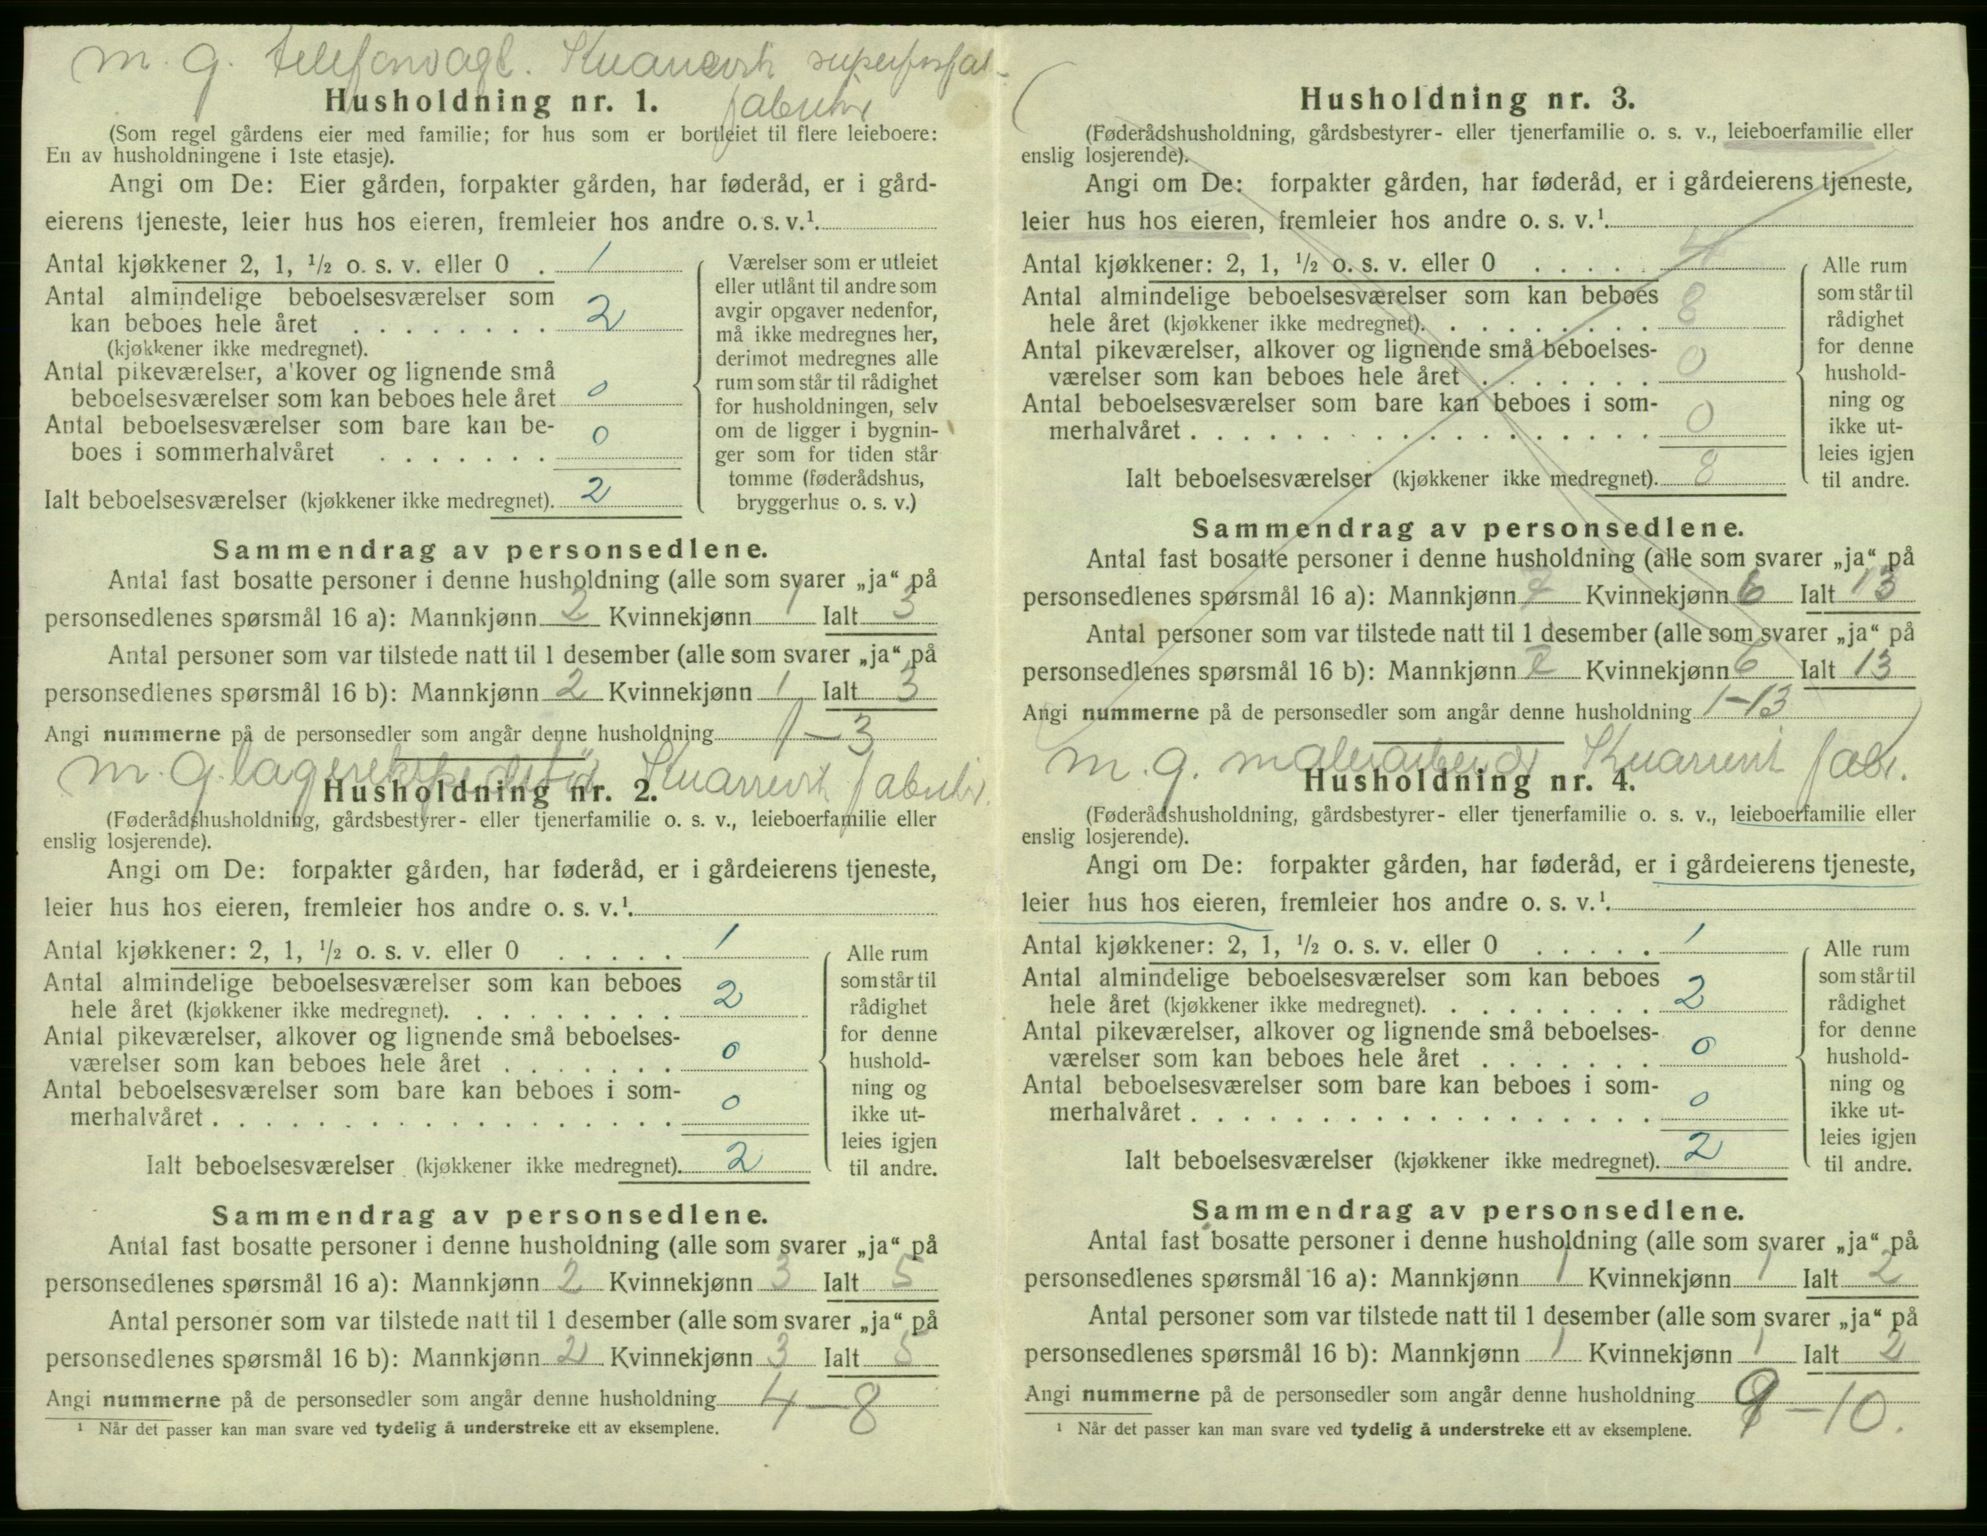 m. g. telefonvagt. superfosfat-
Husholdning nr. 1.
(Som regel gårdens eier med familie; for hus som er bortleiet til flere leieboere:
En av husholdningene i 1ste etasje).
Angi om De: Eier gården, forpakter gården, har føderåd, er i gård-
eierens tjeneste, leier hus hos eieren, fremleier hos andre o. s. v.¹.
Antal kjøkkener 2, 1, ½ o. s. v. eller 0 . 1
Antal almindelige beboelsesværelser som
kan beboes hele året . . . . . . . . 2
(kjøkkener ikke medregnet).
Antal pikeværelser, a'kover og lignende små
beboelsesværelser som kan beboes hele året 0
Antal beboelsesværelser som bare kan be-
boes i sommerhalvåret . . . . . . . 0
Ialt beboelsesværelser (kjøkkener ikke medregnet). 2
Værelser som er utleiet
eller utlånt til andre som
avgir opgaver nedenfor,
må ikke medregnes her,
derimot medregnes alle
rum som står til rådighet
for husholdningen, selv
om de ligger i bygnin-
ger som for tiden står
tomme (føderådshus,
bryggerhus o. s. v.)
Sammendrag av personsedlene.
Antal fast bosatte personer i denne husholdning (alle som svarer „ja“ på
personsedlenes spørsmål 16 a): Mannkjønn 2 Kvinnekjønn 1 Ialt 3
Antal personer som var tilstede natt til 1 desember (alle som svarer „ja“ på
personsedlenes spørsmål 16 b): Mannkjønn 2 Kvinnekjønn 1 Ialt 3
Angi nummerne på de personsedler som angår denne husholdning 1-3
m. g. lagerekspeditør
Husholdning nr. 2.
(Føderådshusholdning, gårdsbestyrer- eller tjenerfamilie o. s. v., leieboerfamilie eller
enslig losjerende).
Angi om De: forpakter gården, har føderåd, er i gårdeierens tjeneste,
leier hus hos eieren, fremleier hos andre o. s. v.¹.
Antal kjøkkener: 2, 1, ½ o. s. v. eller 0 . . . . . 1
Antal almindelige beboelsesværelser som kan beboes
hele året (kjøkkener ikke medregnet). . . . . . . . . 2
Antal pikeværelser, alkover og lignende små beboelses-
værelser som kan beboes hele året . . . . . . . 0
Antal beboelsesværelser som bare kan beboes i som-
merhalvåret . . . . . . . . . . . . . . . . . . 0
Ialt beboelsesværelser (kjøkkener ikke medregnet). 2
Alle rum
som står til
rådighet
for denne
hushold-
ning og
ikke ut-
leies igjen
til andre.
Sammendrag av personsedlene.
Antal fast bosatte personer i denne husholdning (alle som svarer „ja“ på
personsedlenes spørsmål 16 a): Mannkjønn 2 Kvinnekjønn 3 Ialt 5
Antal personer som var tilstede natt til 1 desember (alle som svarer „ja“ på
personsedlenes spørsmål 16 b): Mannkjønn 2 Kvinnekjønn 3 Ialt 5
Angi nummerne på de personsedler som angår denne husholdning 4-8
¹ Når det passer kan man svare ved tydelig å understreke ett av eksemplene.
Husholdning nr. 3.
(Føderådshusholdning, gårdsbestyrer- eller tjenerfamilie o. s. v., leieboerfamilie eller
enslig losjerende).
Angi om De: forpakter gården, har føderåd, er i gårdeierens tjeneste,
leier hus hos eieren, fremleier hos andre o. s. v.¹.
Antal kjøkkener: 2, 1, ½ o. s. v. eller 0 . . . . . 4
Antal almindelige beboelsesværelser som kan beboes
hele året (kjøkkener ikke medregnet). . . . . . . . . 8
Antal pikeværelser, alkover og lignende små beboelses-
værelser som kan beboes hele året . . . . . . . 0
Antal beboelsesværelser som bare kan beboes i som-
merhalvåret . . . . . . . . . . . . . . . . . . 0
Ialt beboelsesværelser (kjøkkener ikke medregnet). 8
Alle rum
som står til
rådighet
for denne
hushold-
ning og
ikke ut-
leies igjen
til andre.
Sammendrag av personsedlene.
Antal fast bosatte personer i denne husholdning (alle som svarer „ja“ på
personsedlenes spørsmål 16 a): Mannkjønn 7 Kvinnekjønn 6 Ialt 13
Antal personer som var tilstede natt til 1 desember (alle som svarer „ja“ på
personsedlenes spørsmål 16 b): Mannkjønn 7 Kvinnekjønn 6 Ialt 13
Angi nummerne på de personsedler som angår denne husholdning 1-13
m. g. malerarbeider fabr.
Husholdning nr. 4.
(Føderådshusholdning, gårdsbestyrer- eller tjenerfamilie o. s. v., leieboerfamilie eller
enslig losjerende).
Angi om De: forpakter gården, har føderåd, er i gårdeierens tjeneste,
leier hus hos eieren, fremleier hos andre o. s. v.¹.
Antal kjøkkener: 2, 1, ½ o. s. v. eller 0 . . . . . 1
Antal almindelige beboelsesværelser som kan beboes
hele året (kjøkkener ikke medregnet). . . . . . . . . 2
Antal pikeværelser, alkover og lignende små beboelses-
værelser som kan beboes hele året . . . . . . . 0
Antal beboelsesværelser som bare kan beboes i som-
merhalvåret . . . . . . . . . . . . . . . . . . 0
Ialt beboelsesværelser (kjøkkener ikke medregnet). 2
Alle rum
som står til
rådighet
for denne
hushold-
ning og
ikke ut-
leies igjen
til andre.
Sammendrag av personsedlene.
Antal fast bosatte personer i denne husholdning (alle som svarer „ja“ på
personsedlenes spørsmål 16 a): Mannkjønn 1 Kvinnekjønn 1 Ialt 2
Antal personer som var tilstede natt til 1 desember (alle som svarer „ja“ på
personsedlenes spørsmål 16 b): Mannkjønn 1 Kvinnekjønn 1 Ialt 2
Angi nummerne på de personsedler som angår denne husholdning 9-10.
¹ Når det passer kan man svare ved tydelig å understreke ett av eksemplene.